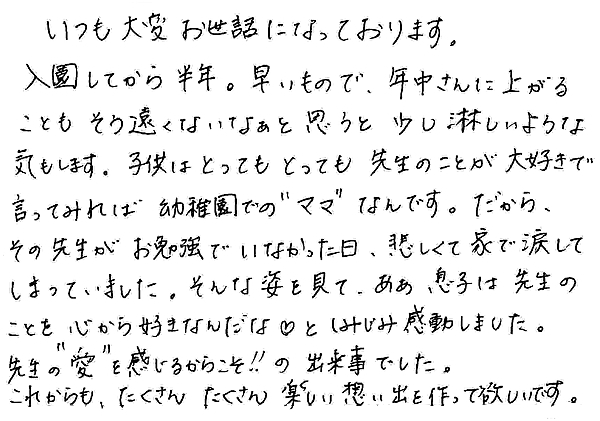 いつも大変お世話になっております。
入園してから半年。早いもので、年中さんに上がる
こともそう遠くないなぁと思うと少し淋しいような
気もします。子供はとってもとっても先生のことが大好きで
言ってみれば幼稚園での"ママ"なんです。だから、
その先生がお勉強でいなかった日、悲しくて家で涙して
しまっていました。そんな姿を見て、ああ息子は先生の
ことを心から好きなんだな♡としみじみ感動しました。
先生の"愛"を感じるからこそ!!の出来事でした。
これからも、たくさんたくさん楽しい想い出を作って欲しいです。